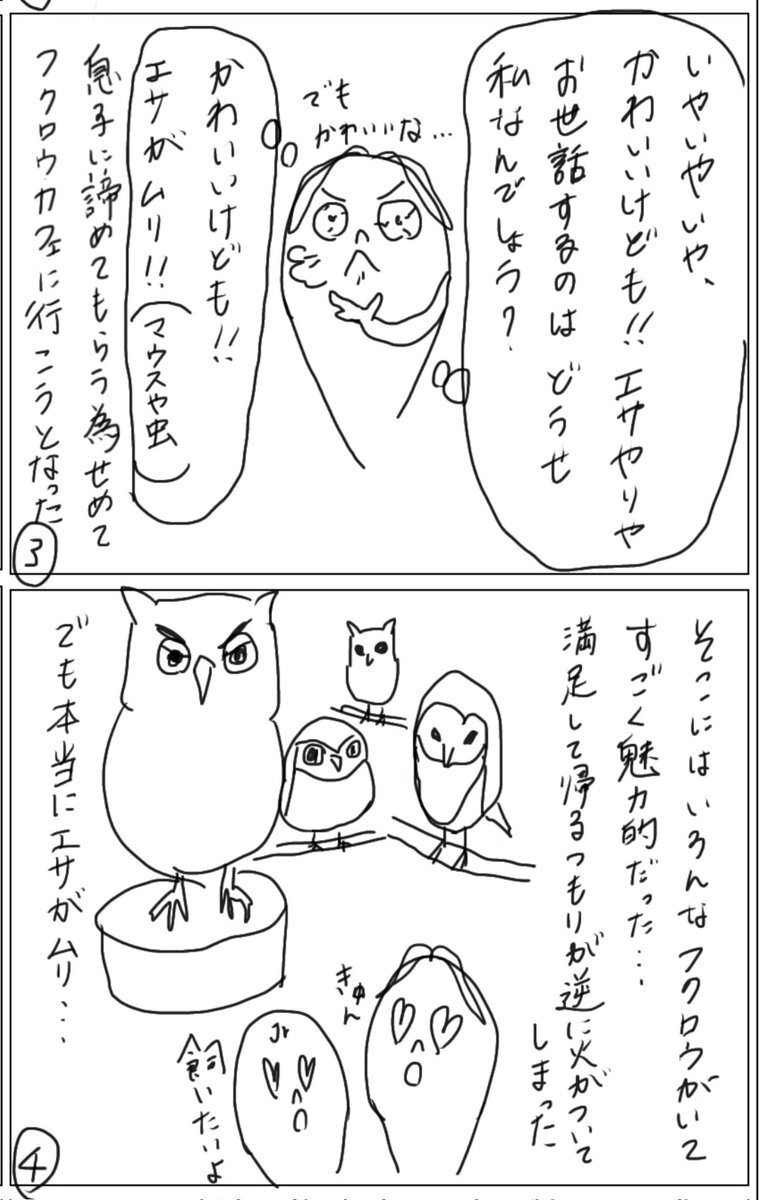 いやいやいや、
かわいいけども!!エサやりや
お世話するのはどうせ
私なんでしょう?
でも
かわいいな…
かわいいけども!!
エサがムリ!!(マウスや虫)
息子に諦めてもらう為せめて
フクロウカフェに行こうとなった
3
そこにはいろんなフクロウがいて
すごく魅力的だった…
満足して帰るつもりが逆に火がついて
しまった
でも本当にエサがムリ…
きゅん
Jr
飼いたいよ
4